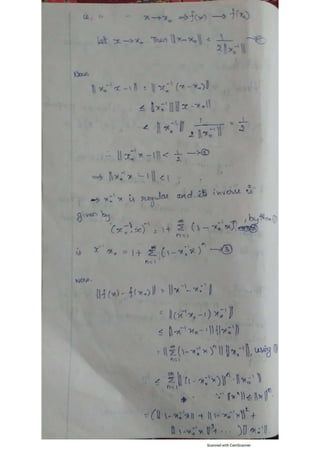 i.e., x → x₀ ⇒ f(x) → f(x₀)
Let x → x₀ Then ‖x-x₀‖ < 1/(2‖x₀⁻¹‖)
Now
‖x₀⁻¹x-1‖ = ‖x₀⁻¹(x-x₀)‖
≤ ‖x₀⁻¹‖ ‖x-x₀‖
< ‖x₀⁻¹‖ 1/(2‖x₀⁻¹‖) = 1/2
∴ ‖x₀⁻¹x-1‖ < 1/2 → ②
⇒ ‖x₀⁻¹x-1‖ < 1
⇒ x₀⁻¹x is regular and its inverse is
given by
(x₀⁻¹x)⁻¹ = 1 + Σ_{n=1}^{∞} (1-x₀⁻¹x)ⁿ, by thm
is x⁻¹x₀ = 1 + Σ_{n=1}^{∞} (1-x₀⁻¹x)ⁿ → ③
Now
‖f(x)-f(x₀)‖ = ‖x⁻¹-x₀⁻¹‖
= ‖(x⁻¹x₀-1)x₀⁻¹‖
≤ ‖x⁻¹x₀-1‖ ‖x₀⁻¹‖
= ‖Σ_{n=1}^{∞} (1-x₀⁻¹x)ⁿ‖ ‖x₀⁻¹‖, using
≤ Σ_{n=1}^{∞} ‖(1-x₀⁻¹x)‖ⁿ ‖x₀⁻¹‖
∵ ‖xⁿ‖ ≤ ‖x‖ⁿ
= (‖1-x₀⁻¹x‖ + ‖1-x₀⁻¹x‖² +
‖1-x₀⁻¹x‖³ + ...) ‖x₀⁻¹‖
Scanned with CamScanner